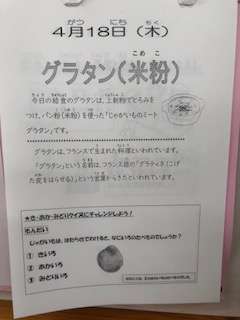 がつ にち もく
4月18日（木）
こめ こ
グラタン（米粉）
今日の給食のグラタンは、上新粉でとろみを
つけ、パン粉（米粉）を使った「じゃがいものミート
グラタン」です。
グラタンは、フランスで生まれた料理といわれています。
「グラタン」という名前は、フランス語の「グラティネ（こげ
た皮をはらせる）」という言葉からきたといわれています。
★き・あか・みどりクイズにチャレンジしよう！
もんだい
じゃがいもは、はたらきでわけると、なにいろのたべものでしょうか？
① きいろ
② あかいろ
③ みどりいろ